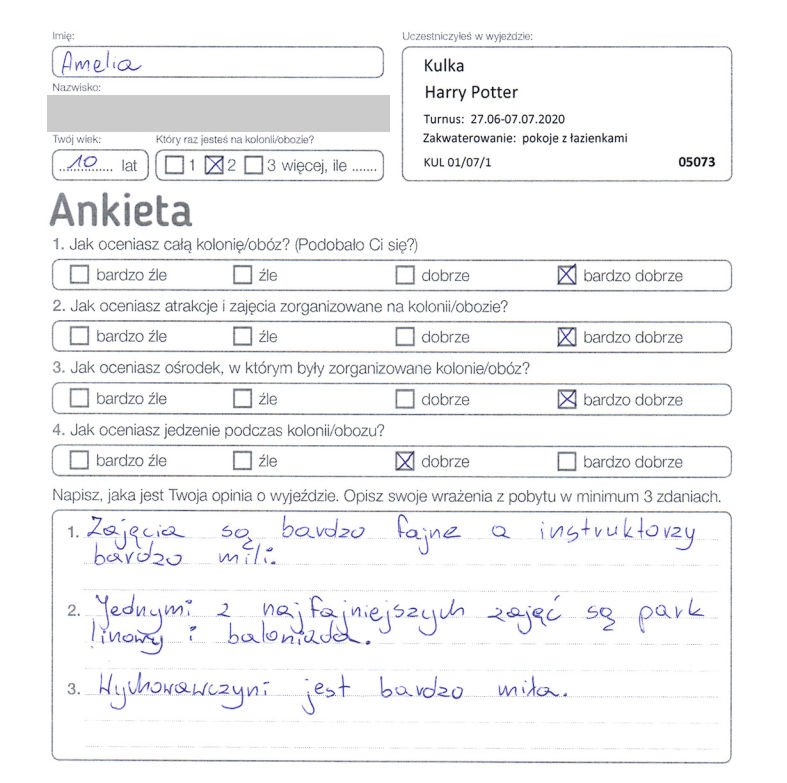 Imię:
Uczestniczyłeś w wyjeździe:
Amelia
Kulka
Harry Potter
Turnus: 27.06-07.07.2020
Zakwaterowanie: pokoje z łazienkami
KUL 01/07/1 05073
Nazwisko:
Twój wiek: Który raz jesteś na kolonii/obozie?
10 lat 1 2 3 więcej, ile .......
Ankieta
1. Jak oceniasz całą kolonię/obóz? (Podobało Ci się?)
bardzo źle źle dobrze bardzo dobrze
2. Jak oceniasz atrakcje i zajęcia zorganizowane na kolonii/obozie?
bardzo źle źle dobrze bardzo dobrze
3. Jak oceniasz ośrodek, w którym były zorganizowane kolonie/obóz?
bardzo źle źle dobrze bardzo dobrze
4. Jak oceniasz jedzenie podczas kolonii/obozu?
bardzo źle źle dobrze bardzo dobrze
Napisz, jaka jest Twoja opinia o wyjeździe. Opisz swoje wrażenia z pobytu w minimum 3 zdaniach.
1. Zajęcia są bardzo fajne a instruktorzy
bardzo mili.
2. Jednymi z najfajniejszych zajęć są park
linowy i baloniada.
3. Wychowawczyni jest bardzo miła.